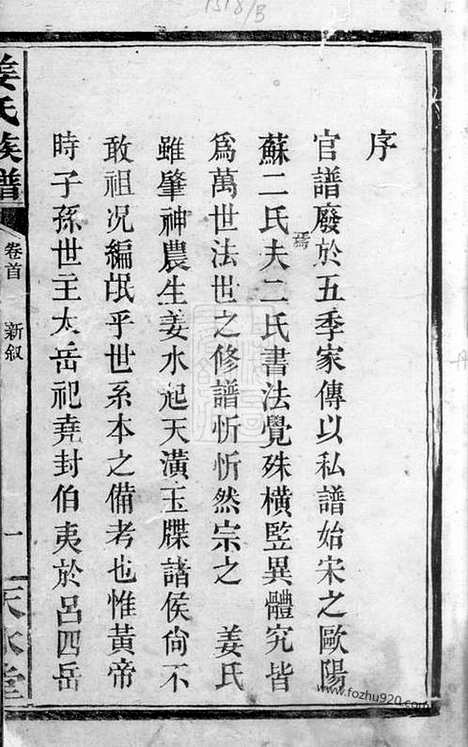 1318/B
序
官譜廢於五季家傳以私譜始宋之歐陽
蘇二氏夫二氏書法覺殊橫竪異體究皆
為萬世法世之修譜忻忻然宗之 姜氏
雖肇神農生姜水起天潢玉牒諸侯尙不
敢祖况編氓乎世系本之備考也惟黃帝
時子孫世主太岳祀堯封伯夷於呂四岳
姜氏族譜
卷首 新敘
一
天水堂
www.fozhu920.com